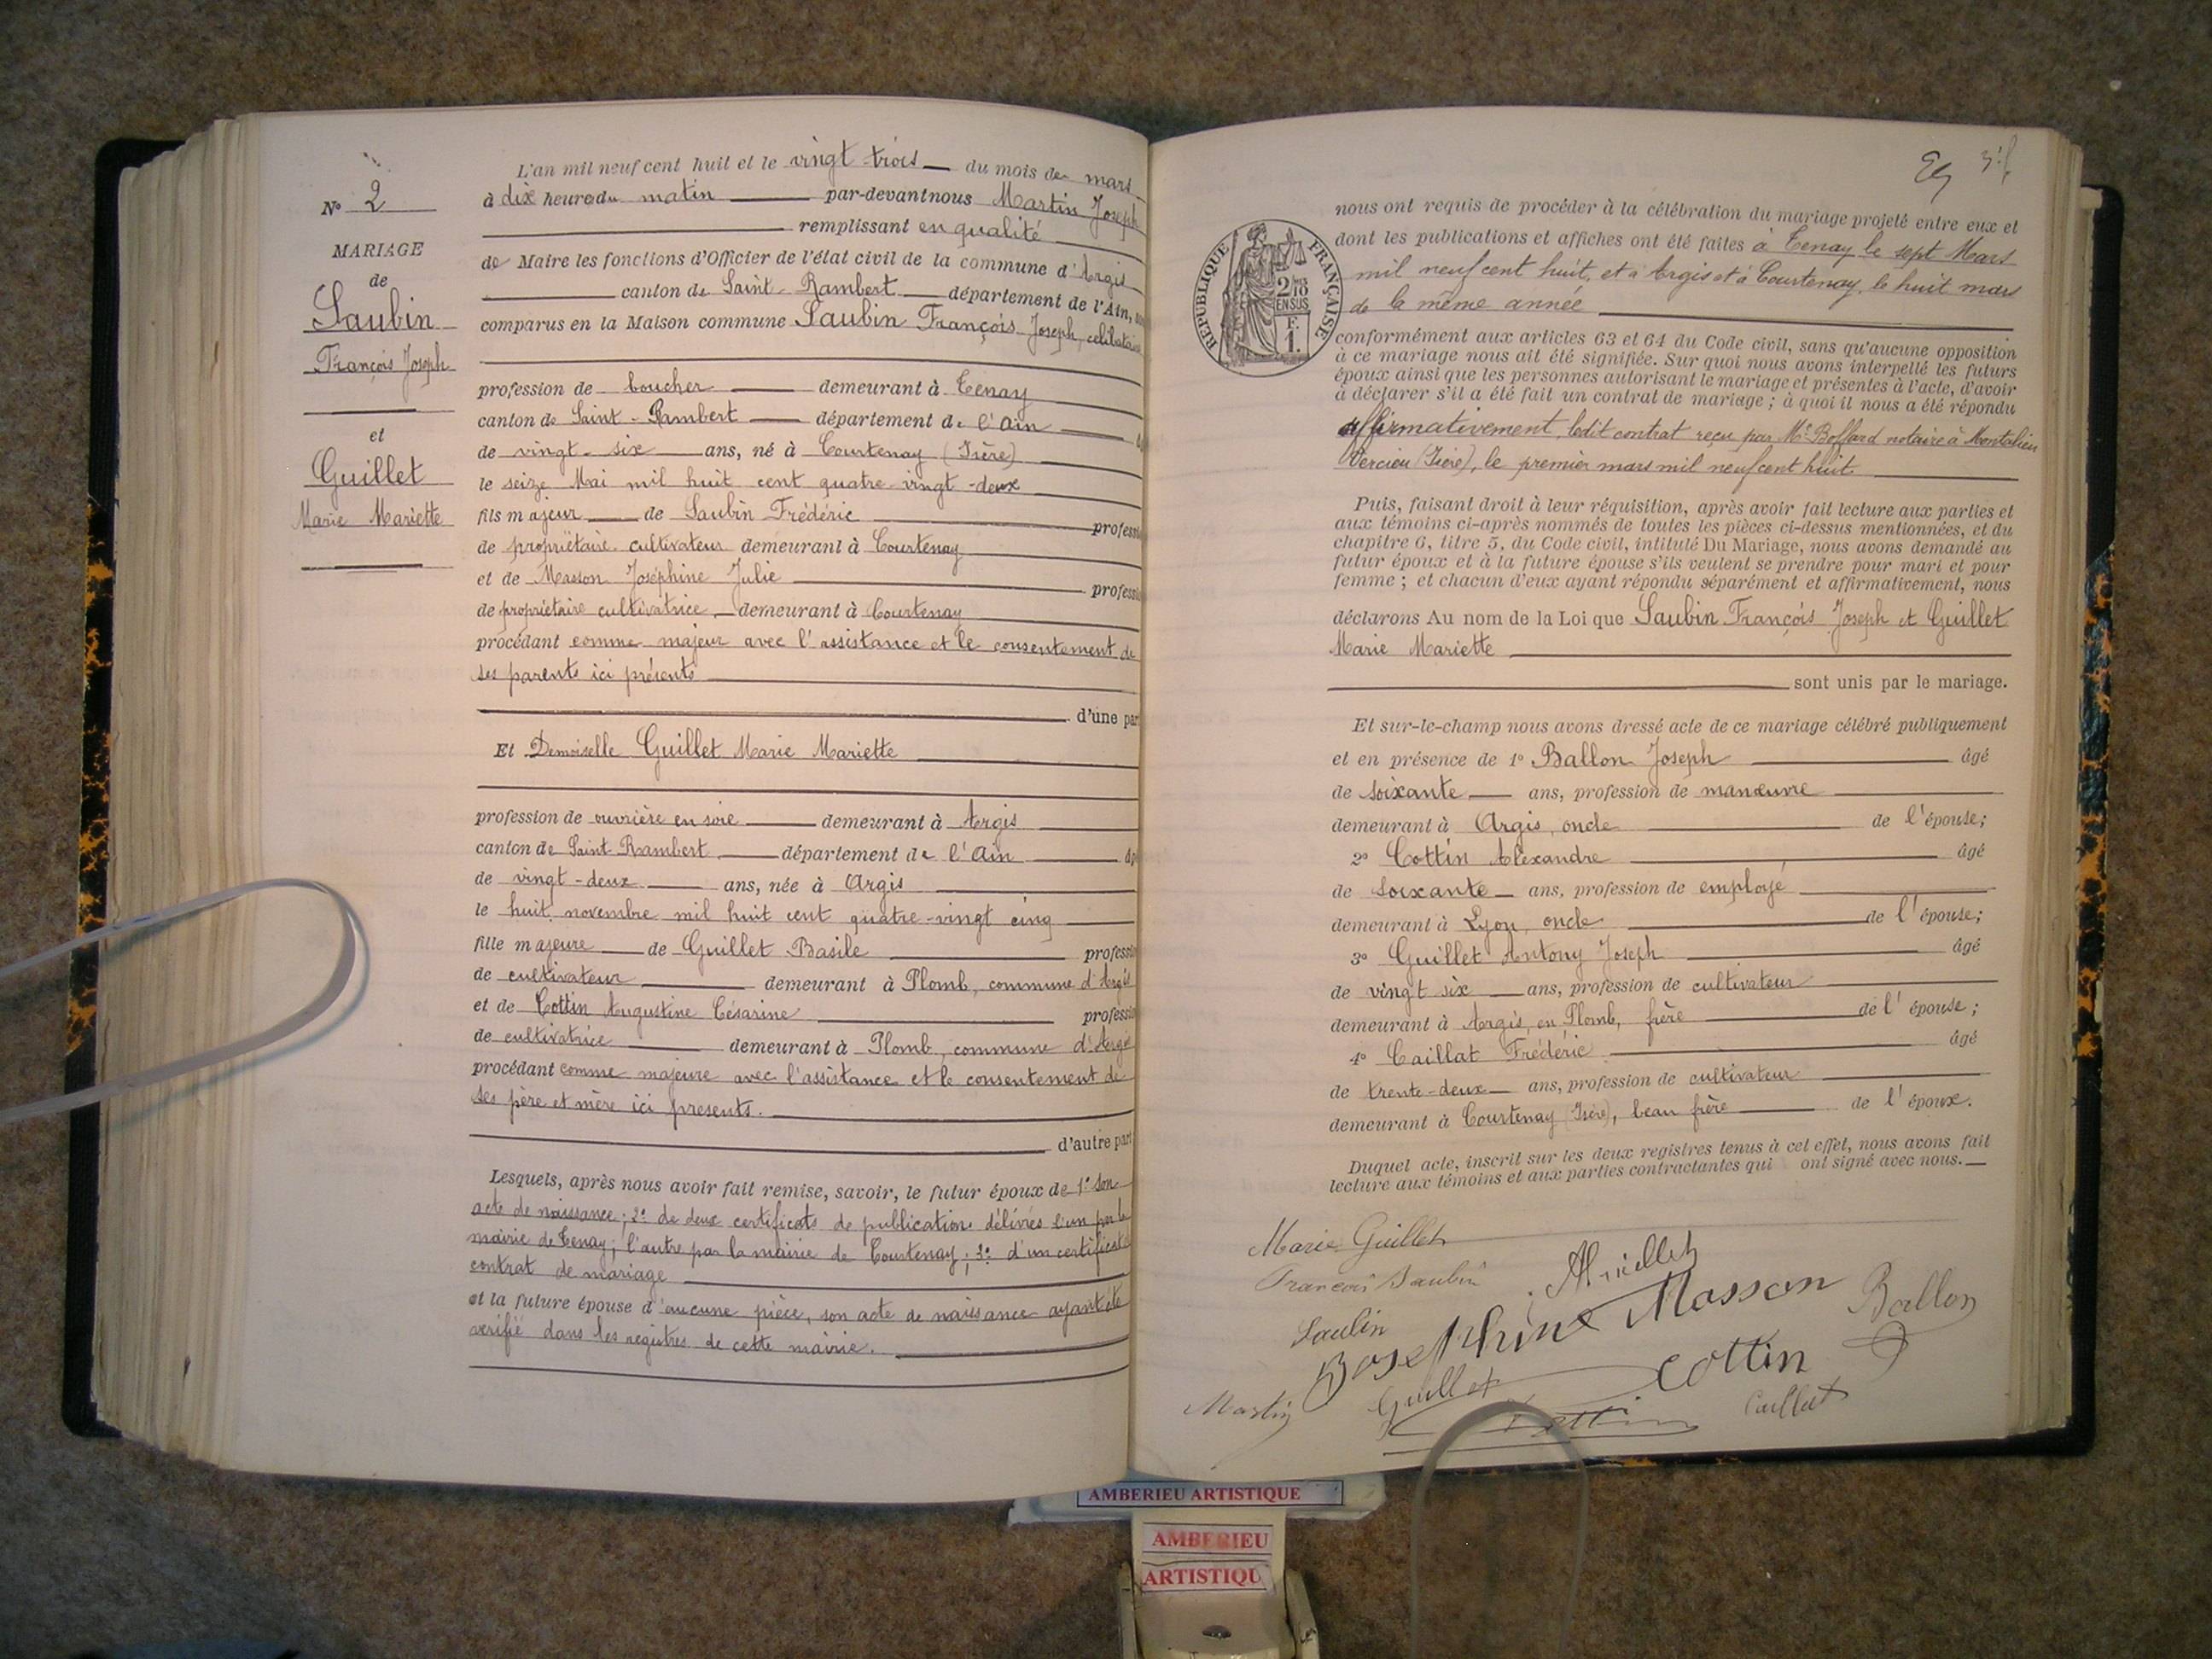 N° 2
MARIAGE
de
Saubin
François Joseph
et
Guillet
Marie Mariette
L'an mil neuf cent huit et le vingt-trois du mois de mars
à dix heures du matin par-devant nous Martin Joseph
remplissant en qualité
de Maire les fonctions d'Officier de l'état civil de la commune d'Argis
canton de Saint-Rambert département de l'Ain,
comparus en la Maison commune Saubin François Joseph, célibataire
profession de boucher demeurant à Tenay
canton de Saint-Rambert département de l'Ain
de vingt-six ans, né à Courtenay (Isère)
le seize Mai mil huit cent quatre-vingt-deux
fils majeur de Saubin Frédéric professi
de propriétaire cultivateur demeurant à Courtenay
et de Masson Joséphine Julie professi
de propriétaire cultivatrice demeurant à Courtenay
procédant comme majeur avec l'assistance et le consentement de
ses parents ici présents
d'une par
Et Demoiselle Guillet Marie Mariette
profession de ouvrière en soie demeurant à Argis
canton de Saint-Rambert département de l'Ain
de vingt-deux ans, née à Argis
le huit novembre mil huit cent quatre-vingt cinq
fille majeure de Guillet Basile professio
de cultivateur demeurant à Plomb, commune d'Argis
et de Cottin Augustine Césarine professio
de cultivatrice demeurant à Plomb, commune d'Argis
procédant comme majeure avec l'assistance et le consentement de
ses père et mère ici présents.
d'autre part
Lesquels, après nous avoir fait remise, savoir, le futur époux de 1° Son
acte de naissance; 2° de deux certificats de publications délivrés l'un par la
mairie de Tenay; l'autre par la mairie de Courtenay; 3° d'un certificat
contrat de mariage
et la future épouse d'aucune pièce, son acte de naissance ayant été
vérifié dans les registres de cette mairie.
REPUBLIQUE FRANÇAISE
2/10
EN SUS
F.
1.
nous ont requis de procéder à la célébration du mariage projeté entre eux et
dont les publications et affiches ont été faites à Tenay le sept Mars
mil neuf cent huit, et à Argis et à Courtenay, le huit mars
de la même année
conformément aux articles 63 et 64 du Code civil, sans qu'aucune opposition
à ce mariage nous ait été signifiée. Sur quoi nous avons interpellé les futurs
époux ainsi que les personnes autorisant le mariage et présentes à l'acte, d'avoir
à déclarer s'il a été fait un contrat de mariage; à quoi il nous a été répondu
affirmativement, ledit contrat reçu par Me Boffard notaire à Montalieu
Vercieu (Isère), le premier mars mil neuf cent huit.
Puis, faisant droit à leur réquisition, après avoir fait lecture aux parties et
aux témoins ci-après nommés de toutes les pièces ci-dessus mentionnées, et du
chapitre 6, titre 5, du Code civil, intitulé Du Mariage, nous avons demandé au
futur époux et à la future épouse s'ils veulent se prendre pour mari et pour
femme; et chacun d'eux ayant répondu séparément et affirmativement, nous
déclarons Au nom de la Loi que Saubin François Joseph et Guillet
Marie Mariette
sont unis par le mariage.
Et sur-le-champ nous avons dressé acte de ce mariage célébré publiquement
et en présence de 1° Ballon Joseph âgé
de soixante ans, profession de manœuvre
demeurant à Argis, oncle de l'épouse;
2° Cottin Alexandre âgé
de soixante ans, profession de employé
demeurant à Lyon, oncle de l'épouse;
3° Guillet Antony Joseph âgé
de vingt six ans, profession de cultivateur
demeurant à Argis, en Plomb, frère de l'épouse;
4° Caillat Frédéric âgé
de trente-deux ans, profession de cultivateur
demeurant à Courtenay (Isère), beau frère de l'époux.
Duquel acte, inscrit sur les deux registres tenus à cet effet, nous avons fait
lecture aux témoins et aux parties contractantes qui ont signé avec nous.
Marie Guillet
François Saubin
Saubin
Josephine Masson
Ballon
Guillet
Cottin
Martin
Cottin
Caillat
AMBERIEU ARTISTIQUE
AMBERIEU
ARTISTIQU